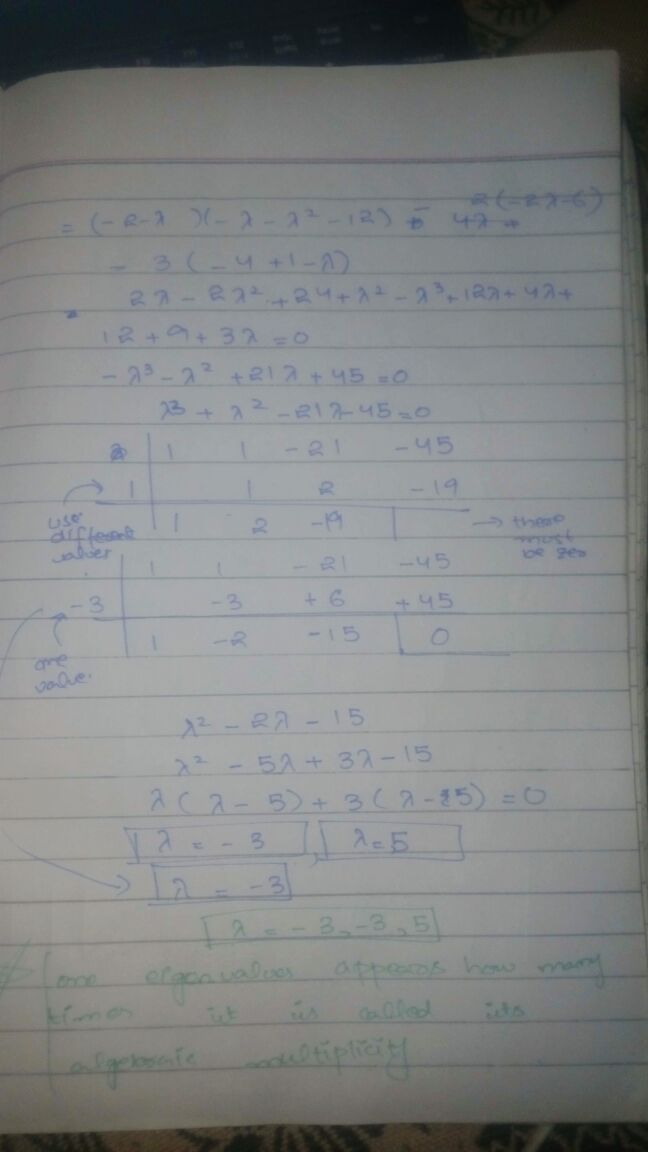 = (-2-λ)(-λ-λ²-12) - 2(-2λ-6)
4λ +
- 3(-4+1-λ)
2λ - 2λ² + 24 + λ² - λ³ + 12λ + 4λ +
12 + 9 + 3λ = 0
-λ³ - λ² + 21λ + 45 = 0
λ³ + λ² - 21λ - 45 = 0
1 1 -21 -45
1 1 2 -19
1 2 -19
use different values
→ these must be zero
1 1 -21 -45
-3 -3 +6 +45
1 -2 -15 0
one value.
λ² - 2λ - 15
λ² - 5λ + 3λ - 15
λ(λ-5) + 3(λ-5) = 0
λ = -3, λ = 5
λ = -3
λ = -3, -3, 5
one eigenvalues appears how many
times it is called its
algebraic multiplicity